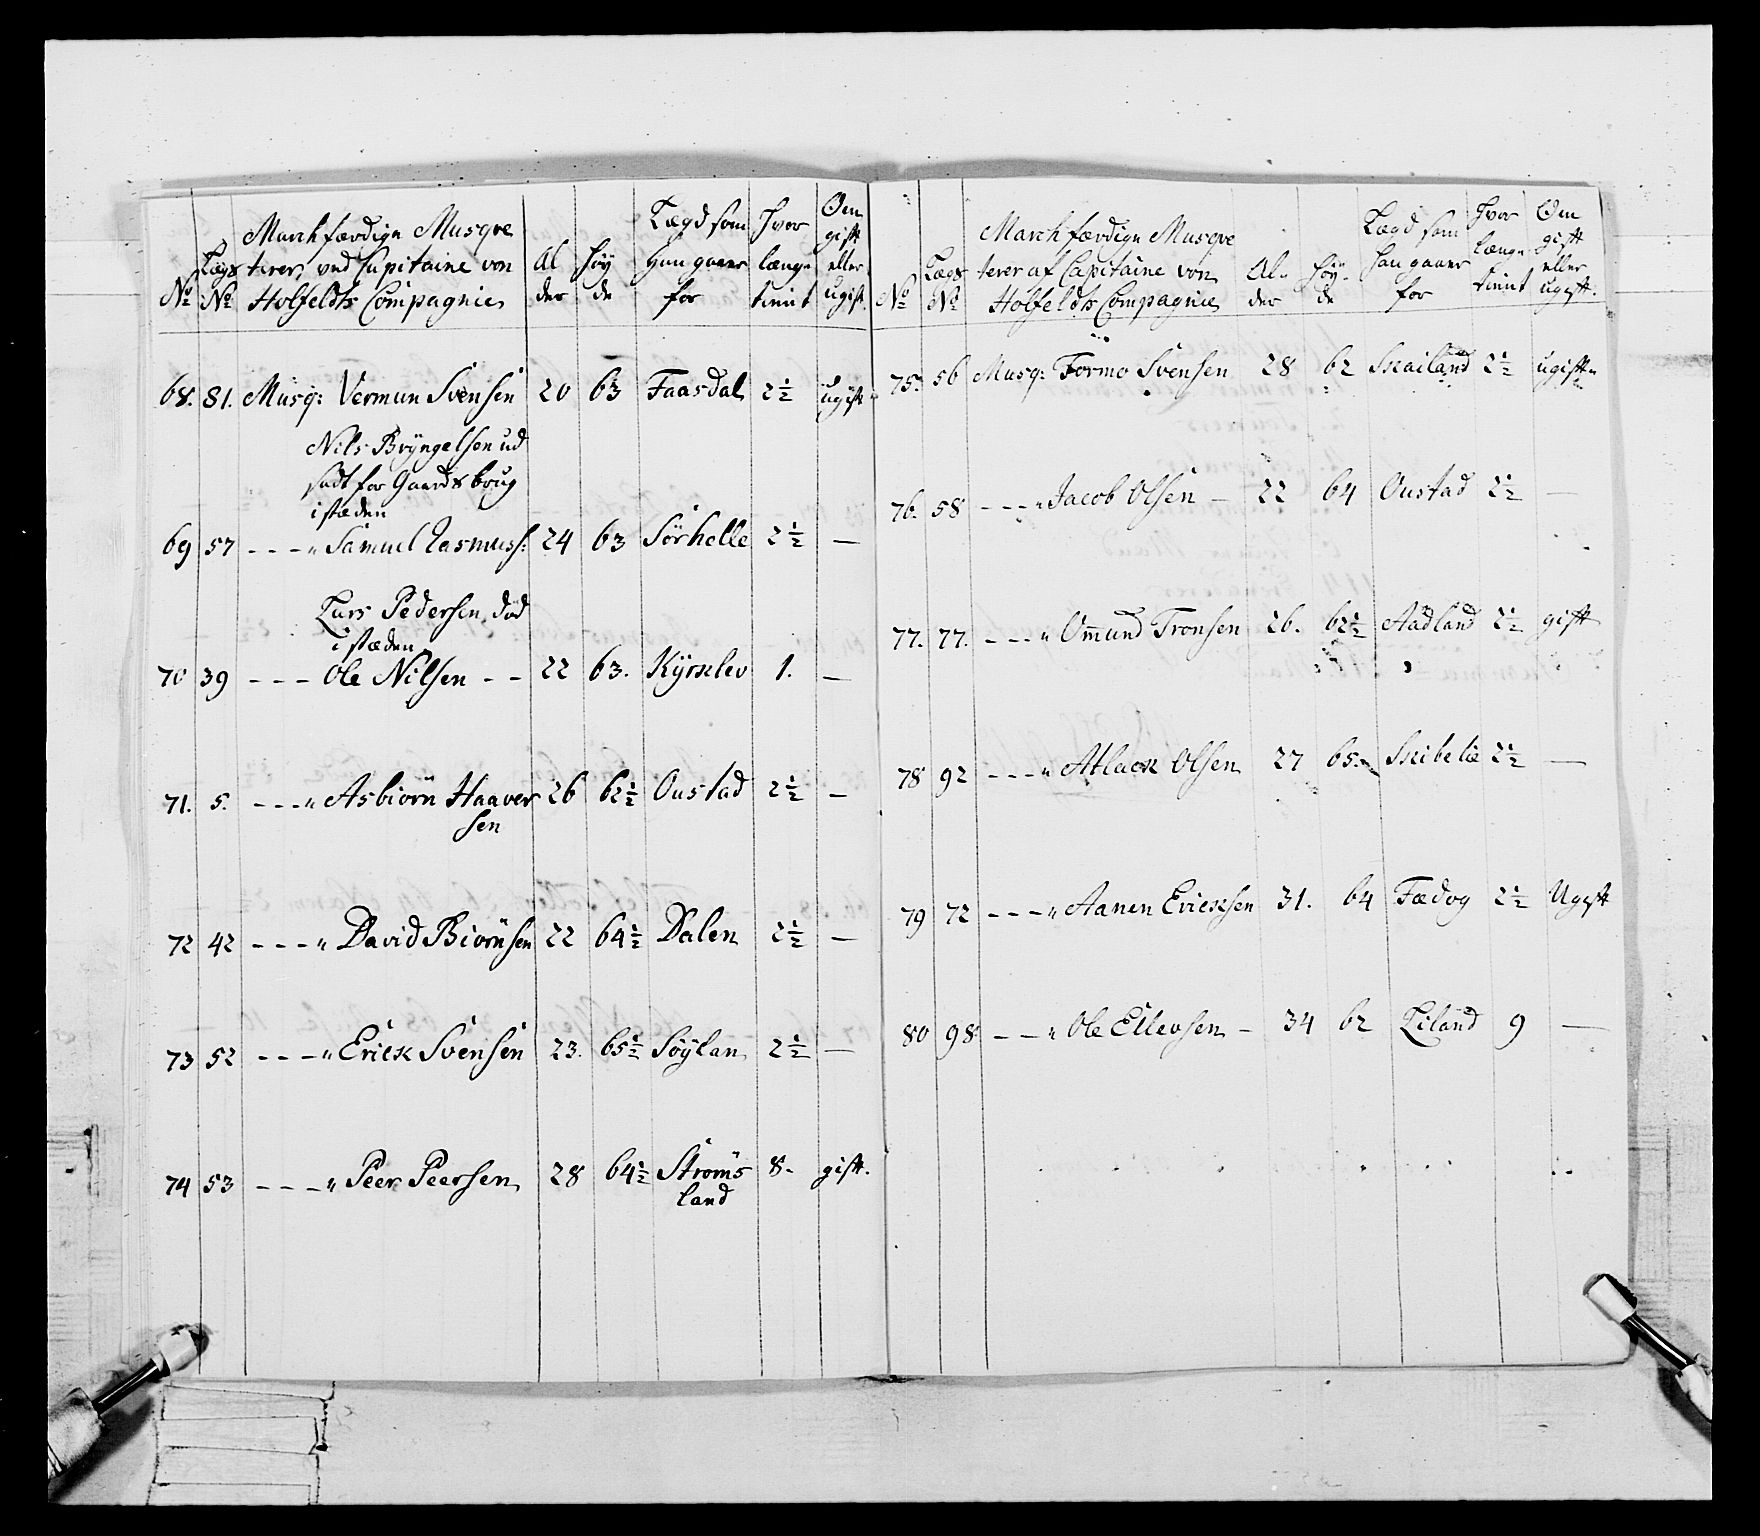 No
Lægs No
Marchfærdige Musqve
terer, ved Capitaine von
Holfeldts Compagnie
Al
der
Höy
de
Lægd som
Han gaaer
for
Hvor
længe
tient
Om
gift
eller
ugift.
68. 81. Musq: Vermun Svensen 20 63 Faasdal 2½ ugift
Nils Brÿngelsen ud
sadt for Gaards brug
i stæden
69 57 - - - " Samuel Rasmuss: 24 63 Sörhelle 2½ —
Lars Pedersen, död
i stæden
70 39 - - - Ole Nilsen - - 22 63. Kÿrklev 1. —
71. 5. - - - " Asbiörn Haaver 26 62½ Oustad 2½ —
sen
72 42 - - - " David Biörnsen 22 64½ Dalen 2½ —
73 52 - - - " Erick Svensen 23. 65½ Söÿlan 2½ —
74 53 - - - " Peer Peersen 28 64½ Ströms 8- gift.
land
No
Lægs No
Marchfærdige Musqve
terer af Capitaine von
Holfeldts Compagnie
Al-
der
Höÿ-
de
Lægd som
han gaaer
for
Hvor
længe
tient
Om
gift
eller
ugift.
75. 56 Musq: Tormo Svensen 28 62 Skailand 2½ ugift
76. 58 - - - " Jacob Olsen — 22 64 Oustad 2½ —
77. 77. - - - " Omund Tronsen 26. 62½ Aadland 2½ gift
78 92 - - - " Atlack Olsen 27 65. Skibelie 2½ —
79 72 - - - " Aanen Ericksen 31. 64 Fædog 2½ Ugift
80 98 - - " Ole Ellevsen - 34 62 Liland 9 —